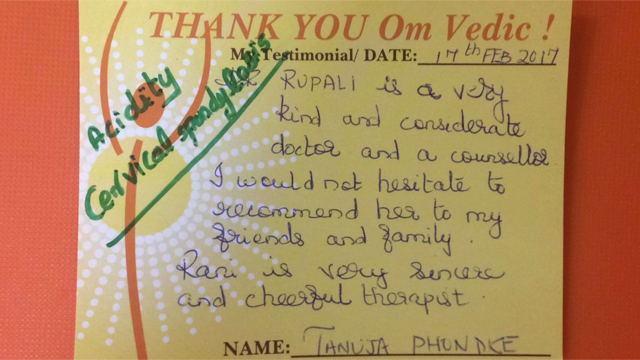 THANK YOU Om Vedic !
My Testimonial/ DATE: 17th FEB 2017
Acidity
Cervical spondylosis
RUPALI is a very
kind and considerate
doctor and a counsellor
I would not hesitate to
recommend her to my
friends and family.
Rani is very sincere
and cheerful therapist.
NAME: TANUJA PHONDKE